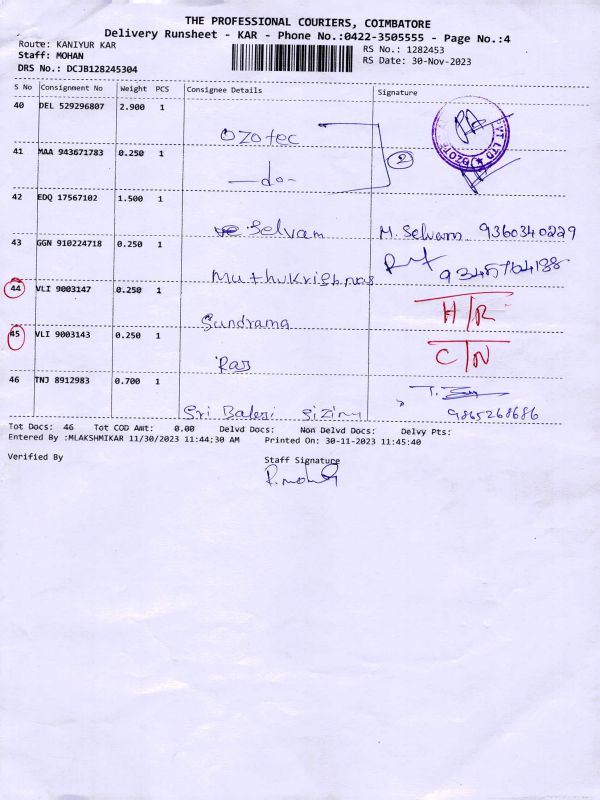 THE PROFESSIONAL COURIERS, COIMBATORE
Delivery Runsheet - KAR - Phone No.:0422-3505555 - Page No.:4
Route: KANIYUR KAR
RS No.: 1282453
Staff: MOHAN
RS Date: 30-Nov-2023
DRS No.: DCJB128245304
S No Consignment No Weight PCS Consignee Details Signature
40 DEL 529296807 2.900 1
Ozotec
41 MAA 943671783 0.250 1
2
-do-
42 EDQ 17567102 1.500 1
Selvam M. Selvam 9360340229
43 GGN 910224718 0.250 1
Muthukrishnas
44 VLI 9003147 0.250 1
Sundrama H/R
45 VLI 9003143 0.250 1
Ras C/N
46 TNJ 8912983 0.700 1
Sri Balaji 9865268686
Tot Docs: 46 Tot COD Amt: 0.00 Delvd Docs: Non Delvd Docs: Delvy Pts:
Entered By :MLAKSHMIKAR 11/30/2023 11:44:30 AM Printed On: 30-11-2023 11:45:40
Verified By Staff Signature
P. Mohan